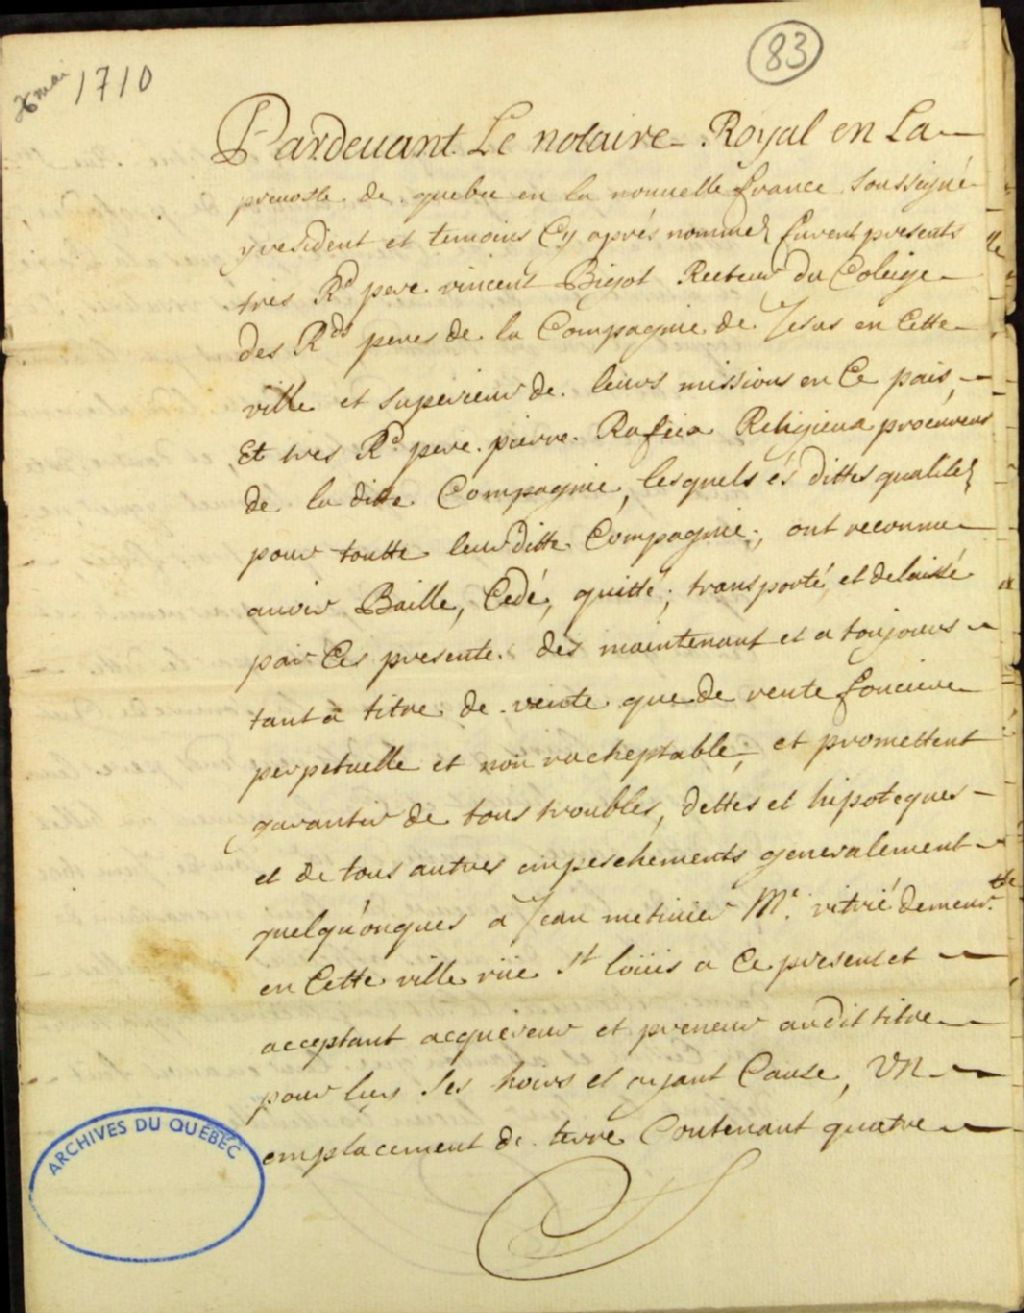 83
26 mai 1710
Pardevant Le notaire Royal en La
prevosté de quebec en la nouvelle france soussigné
y resident et temoins Cy aprés nommez furent presents
tres Rd pere vincent Bigot Recteur du Coleige
des Rds peres de la Compagnie de Jesus en Cette
ville et superieur de leurs missions en Ce païs,
Et tres Rd pere pierre Rafeix Religieux procureur
de la ditte Compagnie, lesquels és dittes qualitez
pour toutte leur ditte Compagnie, ont reconnu
avoir Baillé, Cedé, quitté, transporté, et delaissé
par Ces presente des maintenant et a toujours
tant a titre de vente que de rente fonciere
perpetuelle et non racheptable; et promettent
garantir de tous troubles, dettes et hipoteques
et de tous autres empeschements generalement
quelqu'onques a Jean metivier Me. vitrié demeurt
en Cette ville rüe St loüis a Ce present et
acceptant acquereur et preneur audit titre
pour luy ses hoirs et ayant Cause, Un
emplacement de terre Contenant quatre
ARCHIVES DU QUÉBEC